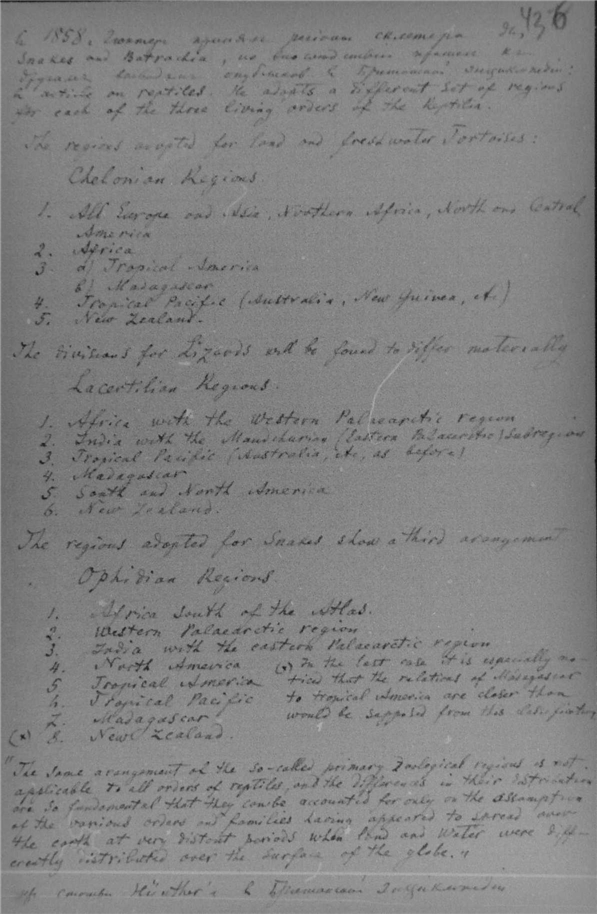 436
В 1858, Гюнтер
Snakes and Batrachia, но
в
article on reptiles. He adopts a different set of regions
for each of the three living orders of the Reptilia.
The regions adopted for land and freshwater Tortoises:
Chelonian Regions.
1. All Europe and Asia, Northern Africa, North and Central
America
2. Africa
3. a) Tropical America
b) Madagascar
4. Tropical Pacific (Australia, New Guinea, etc)
5. New Zealand.
The divisions for Lizards will be found to differ materially
Lacertilian Regions.
1. Africa with the Western Palaearctic region
2. India with the Mandchurian (Eastern Palaearctic) Subregion
3. Tropical Pacific (Australia, etc, as before)
4. Madagascar
5. South and North America
6. New Zealand.
The regions adopted for Snakes show a third arangement
Ophidian Regions
1. Africa south of the Atlas.
2. Western Palaearctic region
3. India with the eastern Palaearctic region
4. North America (x) In the last case it is especially no-
5. Tropical America ticed that the relations of Madagascar
6. Tropical Pacific to tropical America are closer than
7. Madagascar would be supposed from this
(x) 8. New Zealand.
"The same arangement of the so-called primary Zoological regions is not
applicable to all orders of reptiles, and the differences in their distribution
are so fundamental that they can be accounted for only on the assumption
of the various orders and families having appeared to spread over
the earth at very distant periods when land and water were diff-
erently distributed over the surface of the globe."
в